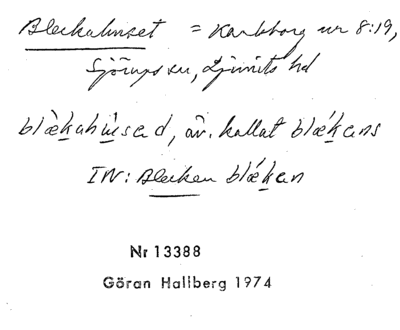 Bleckahuset = Karlsborg nr 8:19,
Sjörups sn, Ljunits hd
blæ̀ka̱hu̱sәd, äv. kallat blæ̀ka̱ns
IN: Blecken blǽkan
Nr 13388
Göran Hallberg 1974